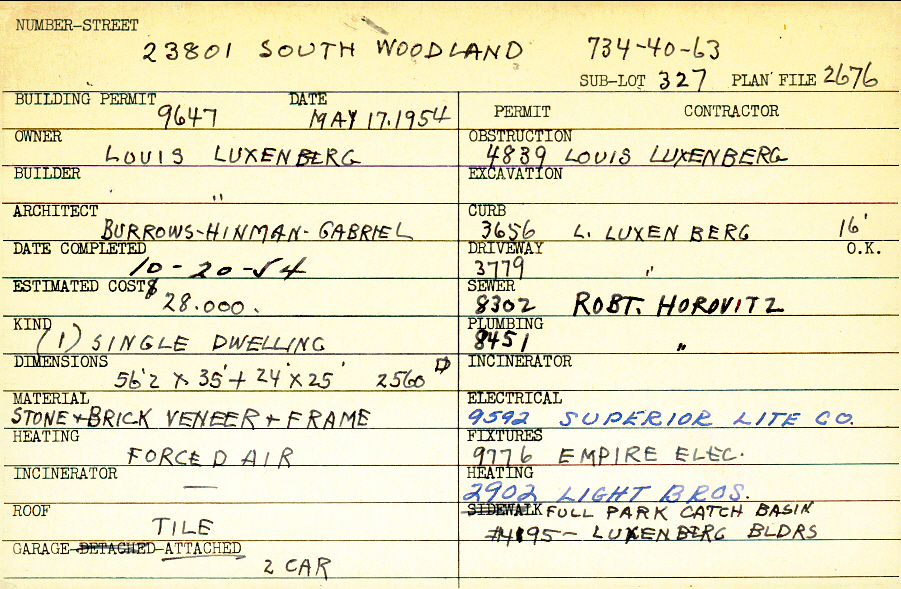 NUMBER-STREET
23801 SOUTH WOODLAND 734-40-63
SUB-LOT 327 PLAN FILE 2676
BUILDING PERMIT DATE
9647 MAY 17.1954
OWNER
LOUIS LUXENBERG
BUILDER
"
ARCHITECT
BURROWS-HINMAN-GABRIEL
DATE COMPLETED
10-20-54
ESTIMATED COST $
28.000.
KIND
(1) SINGLE DWELLING
DIMENSIONS
56'2 x 35' + 24' x 25' 2560
MATERIAL
STONE + BRICK VENEER + FRAME
HEATING
FORCED AIR
INCINERATOR
—
ROOF
TILE
GARAGE-DETACHED-ATTACHED
2 CAR
PERMIT CONTRACTOR
OBSTRUCTION
4839 LOUIS LUXENBERG
EXCAVATION
CURB
3656 L. LUXENBERG 16'
DRIVEWAY O.K.
3779 "
SEWER
8302 ROBT. HOROVITZ
PLUMBING
8451 "
INCINERATOR
ELECTRICAL
9592 SUPERIOR LITE CO.
FIXTURES
9776 EMPIRE ELEC.
HEATING
2902 LIGHT BROS.
SIDEWALK FULL PARK CATCH BASIN
#4195 - LUXENBERG BLDRS